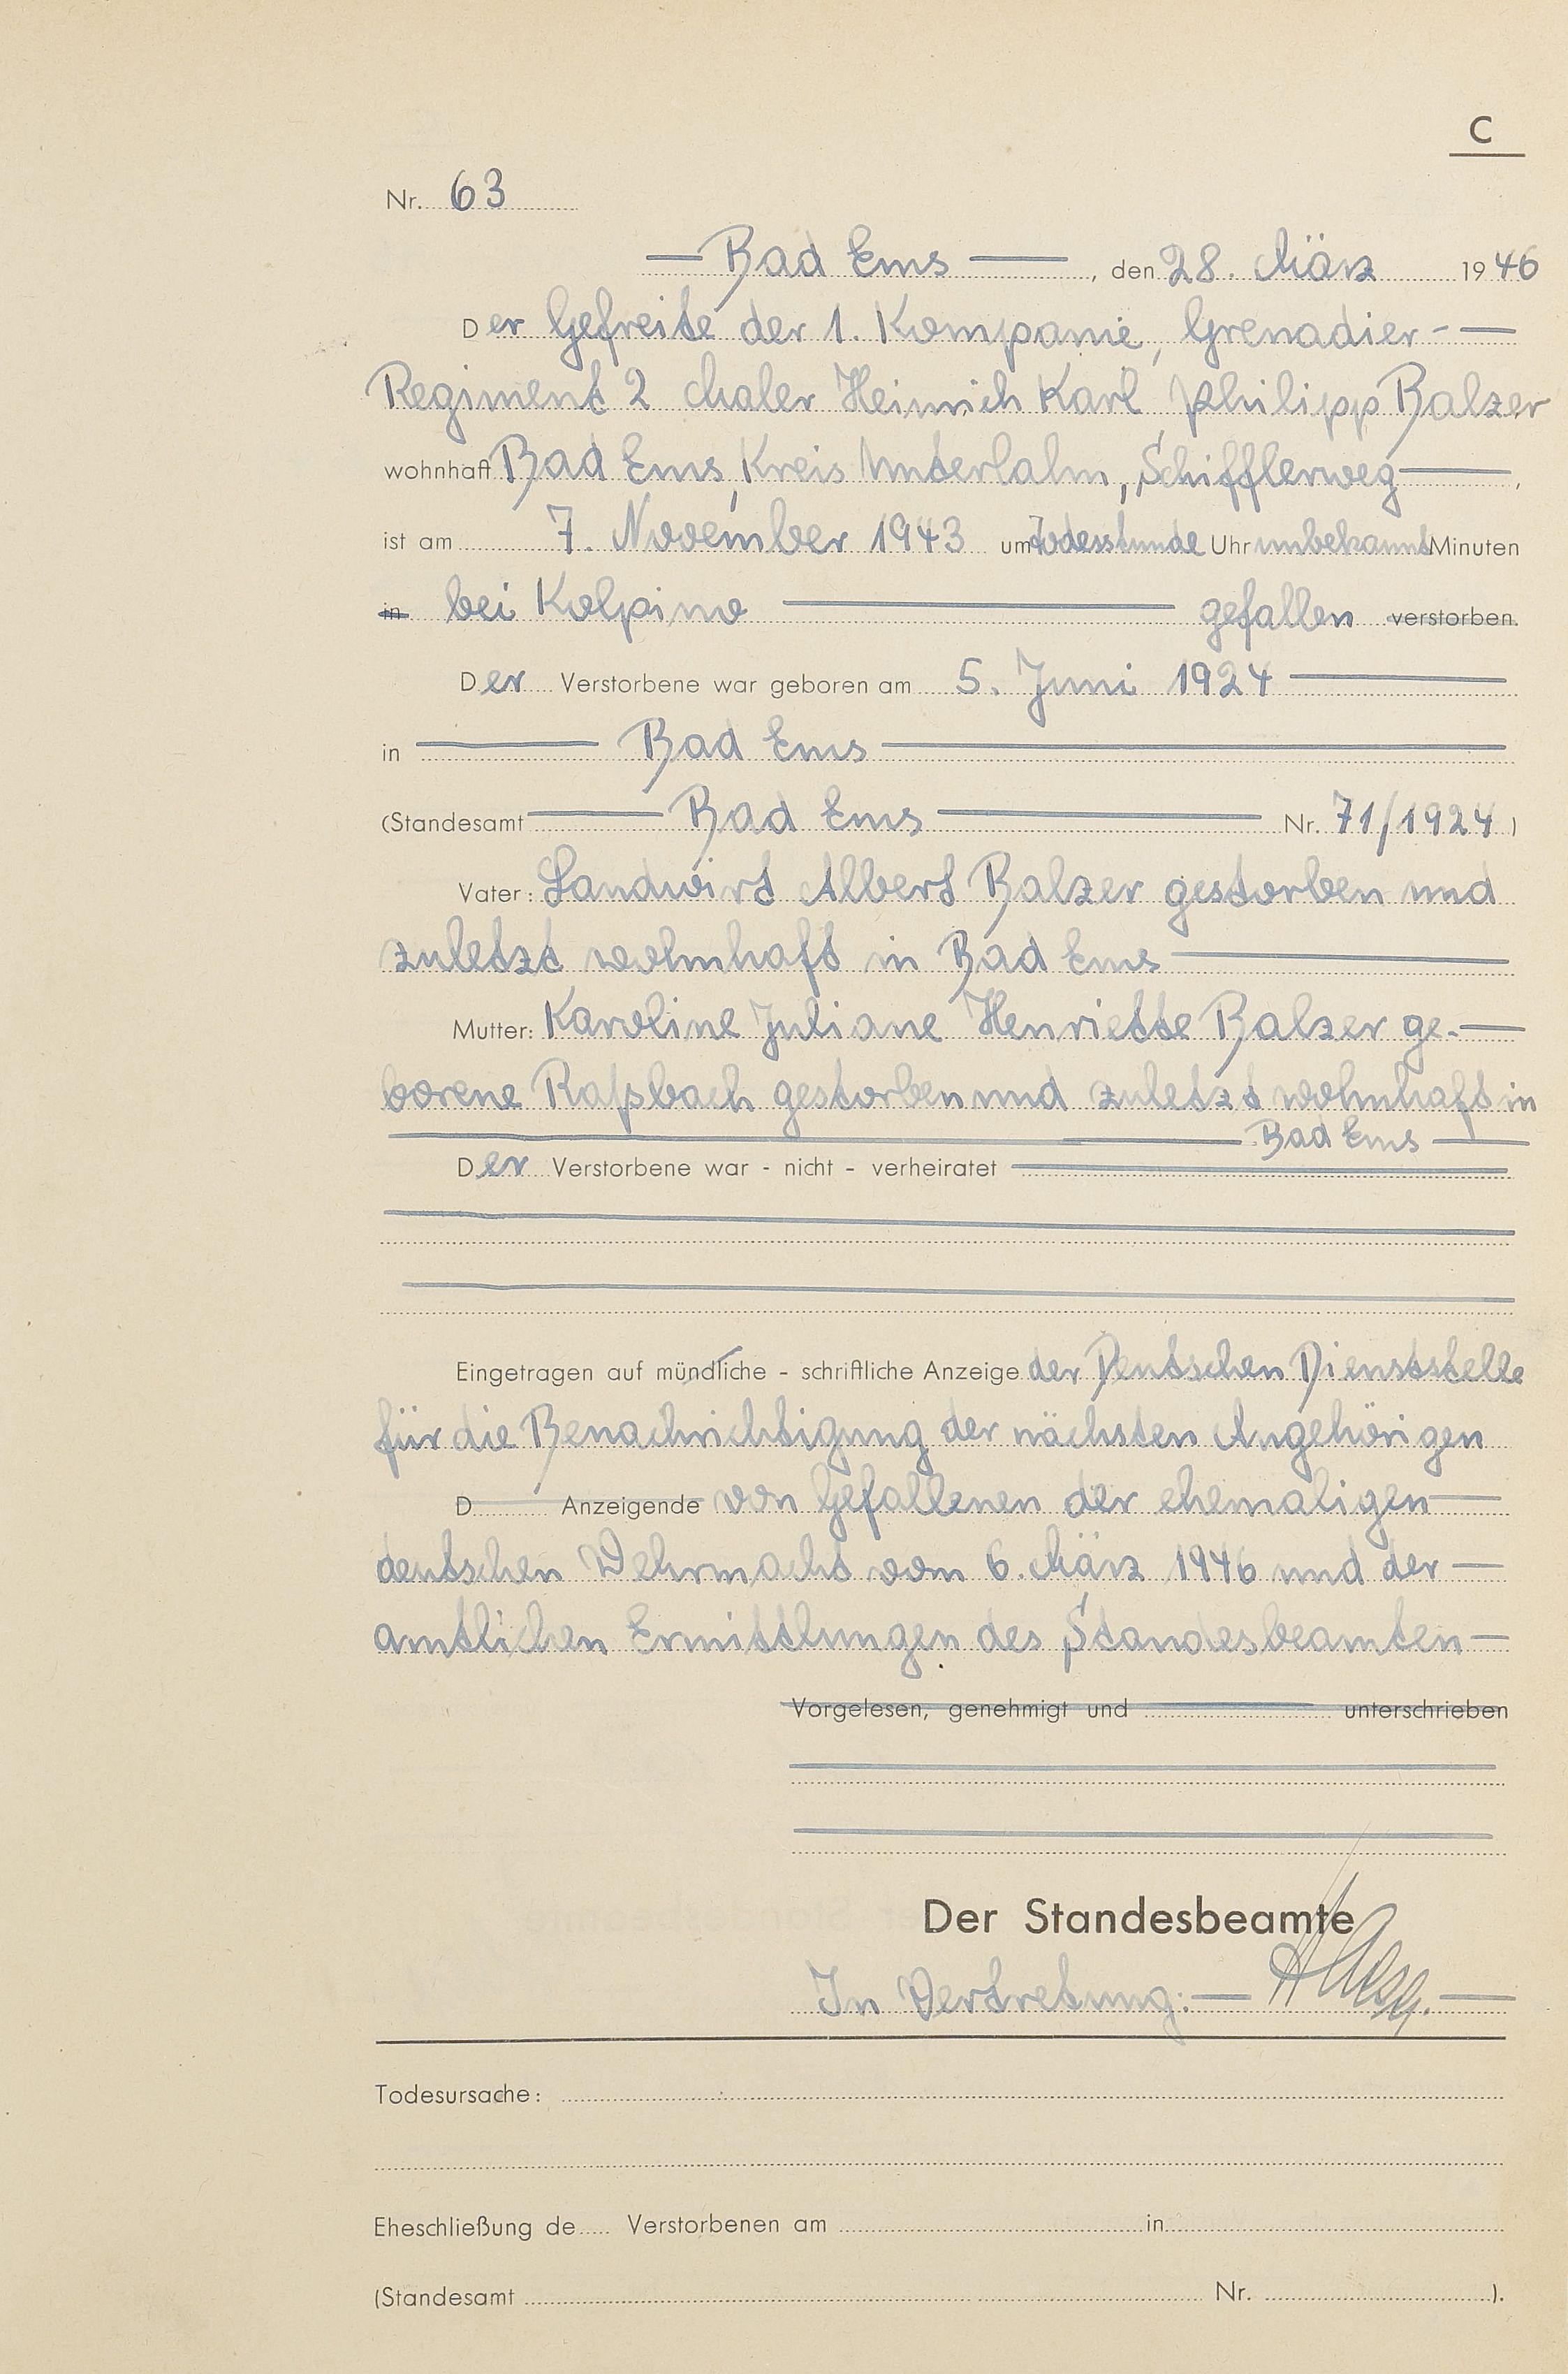 C
Nr. 63
Bad Ems, den 28. März 1946
Der Gefreite der 1. Kompanie, Grenadier-
Regiment 2 Maler Heinrich Karl Philipp Balzer
wohnhaft Bad Ems, Kreis Unterlahn, Schifflerweg,
ist am 7. November 1943 um Todesstunde Uhr unbekannt Minuten
in bei Kolpino gefallen verstorben.
Der Verstorbene war geboren am 5. Juni 1924
in Bad Ems
(Standesamt Bad Ems Nr. 71/1924)
Vater: Landwirt Albert Balzer gestorben und
zuletzt wohnhaft in Bad Ems
Mutter: Karoline Juliane Henriette Balzer ge-
borene Raßbach gestorben und zuletzt wohnhaft in
Bad Ems
Der Verstorbene war - nicht - verheiratet
Eingetragen auf mündliche - schriftliche Anzeige der Deutschen Dienststelle
für die Benachrichtigung der nächsten Angehörigen
D Anzeigende von Gefallenen der ehemaligen
deutschen Wehrmacht vom 6. März 1946 und der
amtlichen Ermittlungen des Standesbeamten
Vorgelesen, genehmigt und unterschrieben
Der Standesbeamte
In Vertretung:
Todesursache:
Eheschließung de Verstorbenen am in
(Standesamt Nr. ).